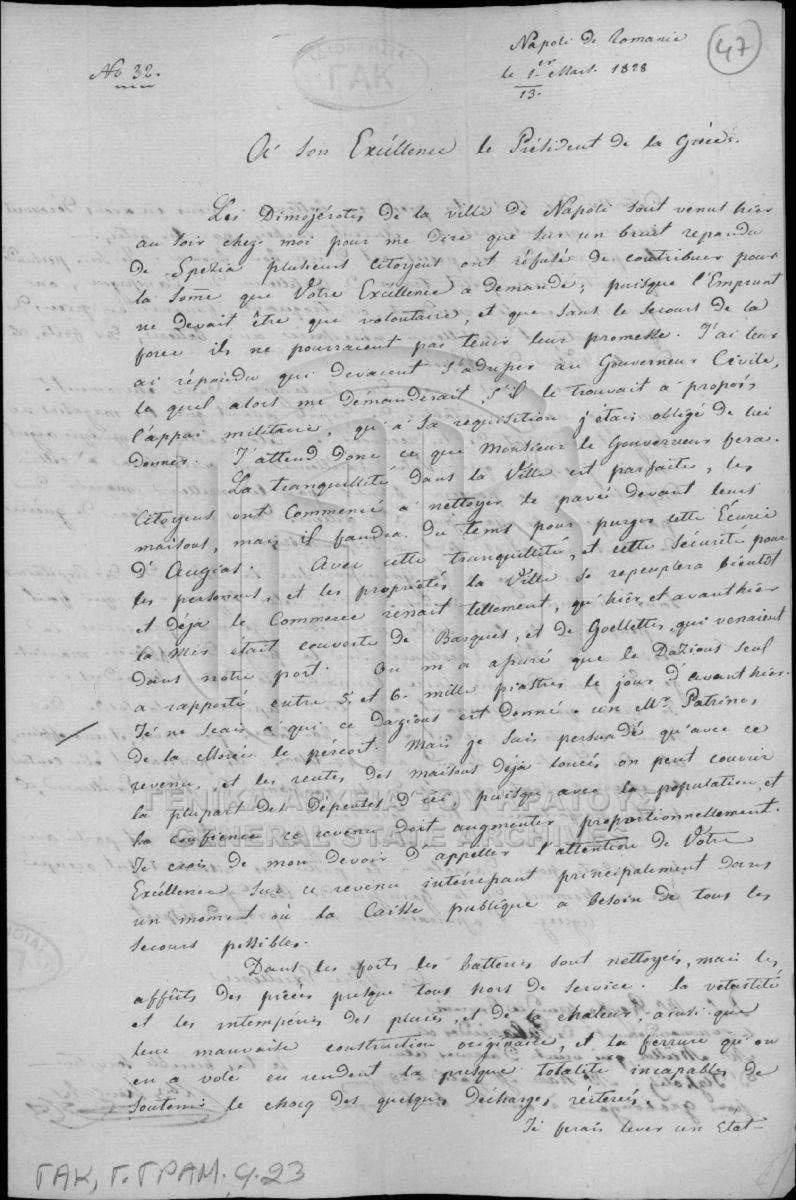 47
Napoli de Romanie
No 32.
le 1er Mars. 1828
13.
A' Son Excéllence le Président de la Grèce.
Les Dimojérotes de la ville de Napoli sont venus hier
au soir chez moi pour me dire que sur un bruit repandu
de Spezia plusieurs Citoyens ont réfusé de contribuer pour
la Somme que Votre Excéllence a demandé, puisque l'Emprunt
ne devait être que volontaire, et que sans le secours de la
force ils ne pourraient pas tenir leur promesse. J'ai leur
ai répondu qui devaient s'adresser au Gouverneur Civile,
le quel alors me démanderait, s'il le trouvait à propos
l'appui militaire, qu'à Sa requisition j'étais obligé de lui
donner. J'attend donc ce que Monsieur le Gouverneur fera.
La tranquillité dans la Ville est parfaite, les
Citoyens ont Commencé à nettoyer le pavée devant leurs
maisons, mais il faudra du tems pour purger cette Écurie
d'Augias. Avec cette tranquillité, et cette Sécurité pour
les personnes, et les propriétés la Ville se repeuplera bientot
et déja le Commerce renait tellement, qu'hier, et avanthier
la Mer était couverte de Barques, et de Goellettes, qui venaient
dans notre port. On m'a assuré que le Dazious seul
a rapporté entre 5. et 6. mille piastres le jour d'avanthier.
Jé ne scais à qui ce dazious est donné. un Mr Patrinos
de la Morée le pércoit. Mais je suis persuadé qu'avec ce
revenu, et les rentes des maisons déja loués on peut couvrir
la plupart des Dépenses d'ici, puisque avec la population, et
la confience ce revenu doit augmenter proportionnellement.
Jé crois de mon devoir d'appeller l'attention de Votre
Excéllence sur ce revenu intérressant principalement dans
un moment où la Caisse publique a besoin de tous les
secours possibles.
Dans les forts les batteries sont nettoyés, mais les
affûts des piécés presque tous hors de service. la vetustité
et les intempéries des places, et de la chaleur, ainsi que
leur mauvaise construction originaire, et la ferrure qu'on
en a volé en rendent la presque totalité incapables de
soutenir le chocq des quelques décharges réiterées.
Jé ferais lever un Etat
ΓΕΝΙΚΑ ΑΡΧΕΙΑ ΤΟΥ ΚΡΑΤΟΥΣ
GENERAL STATE ARCHIVES
ΙΔΙΟΚΤΗΣΙΑ
ΓΑΚ
ΓΑΚ, Γ. ΓΡΑΜ. φ. 23